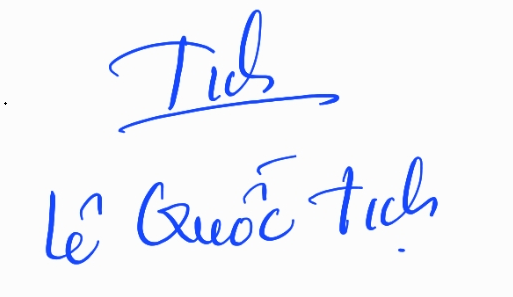 Tich
Lê Quốc Tịch